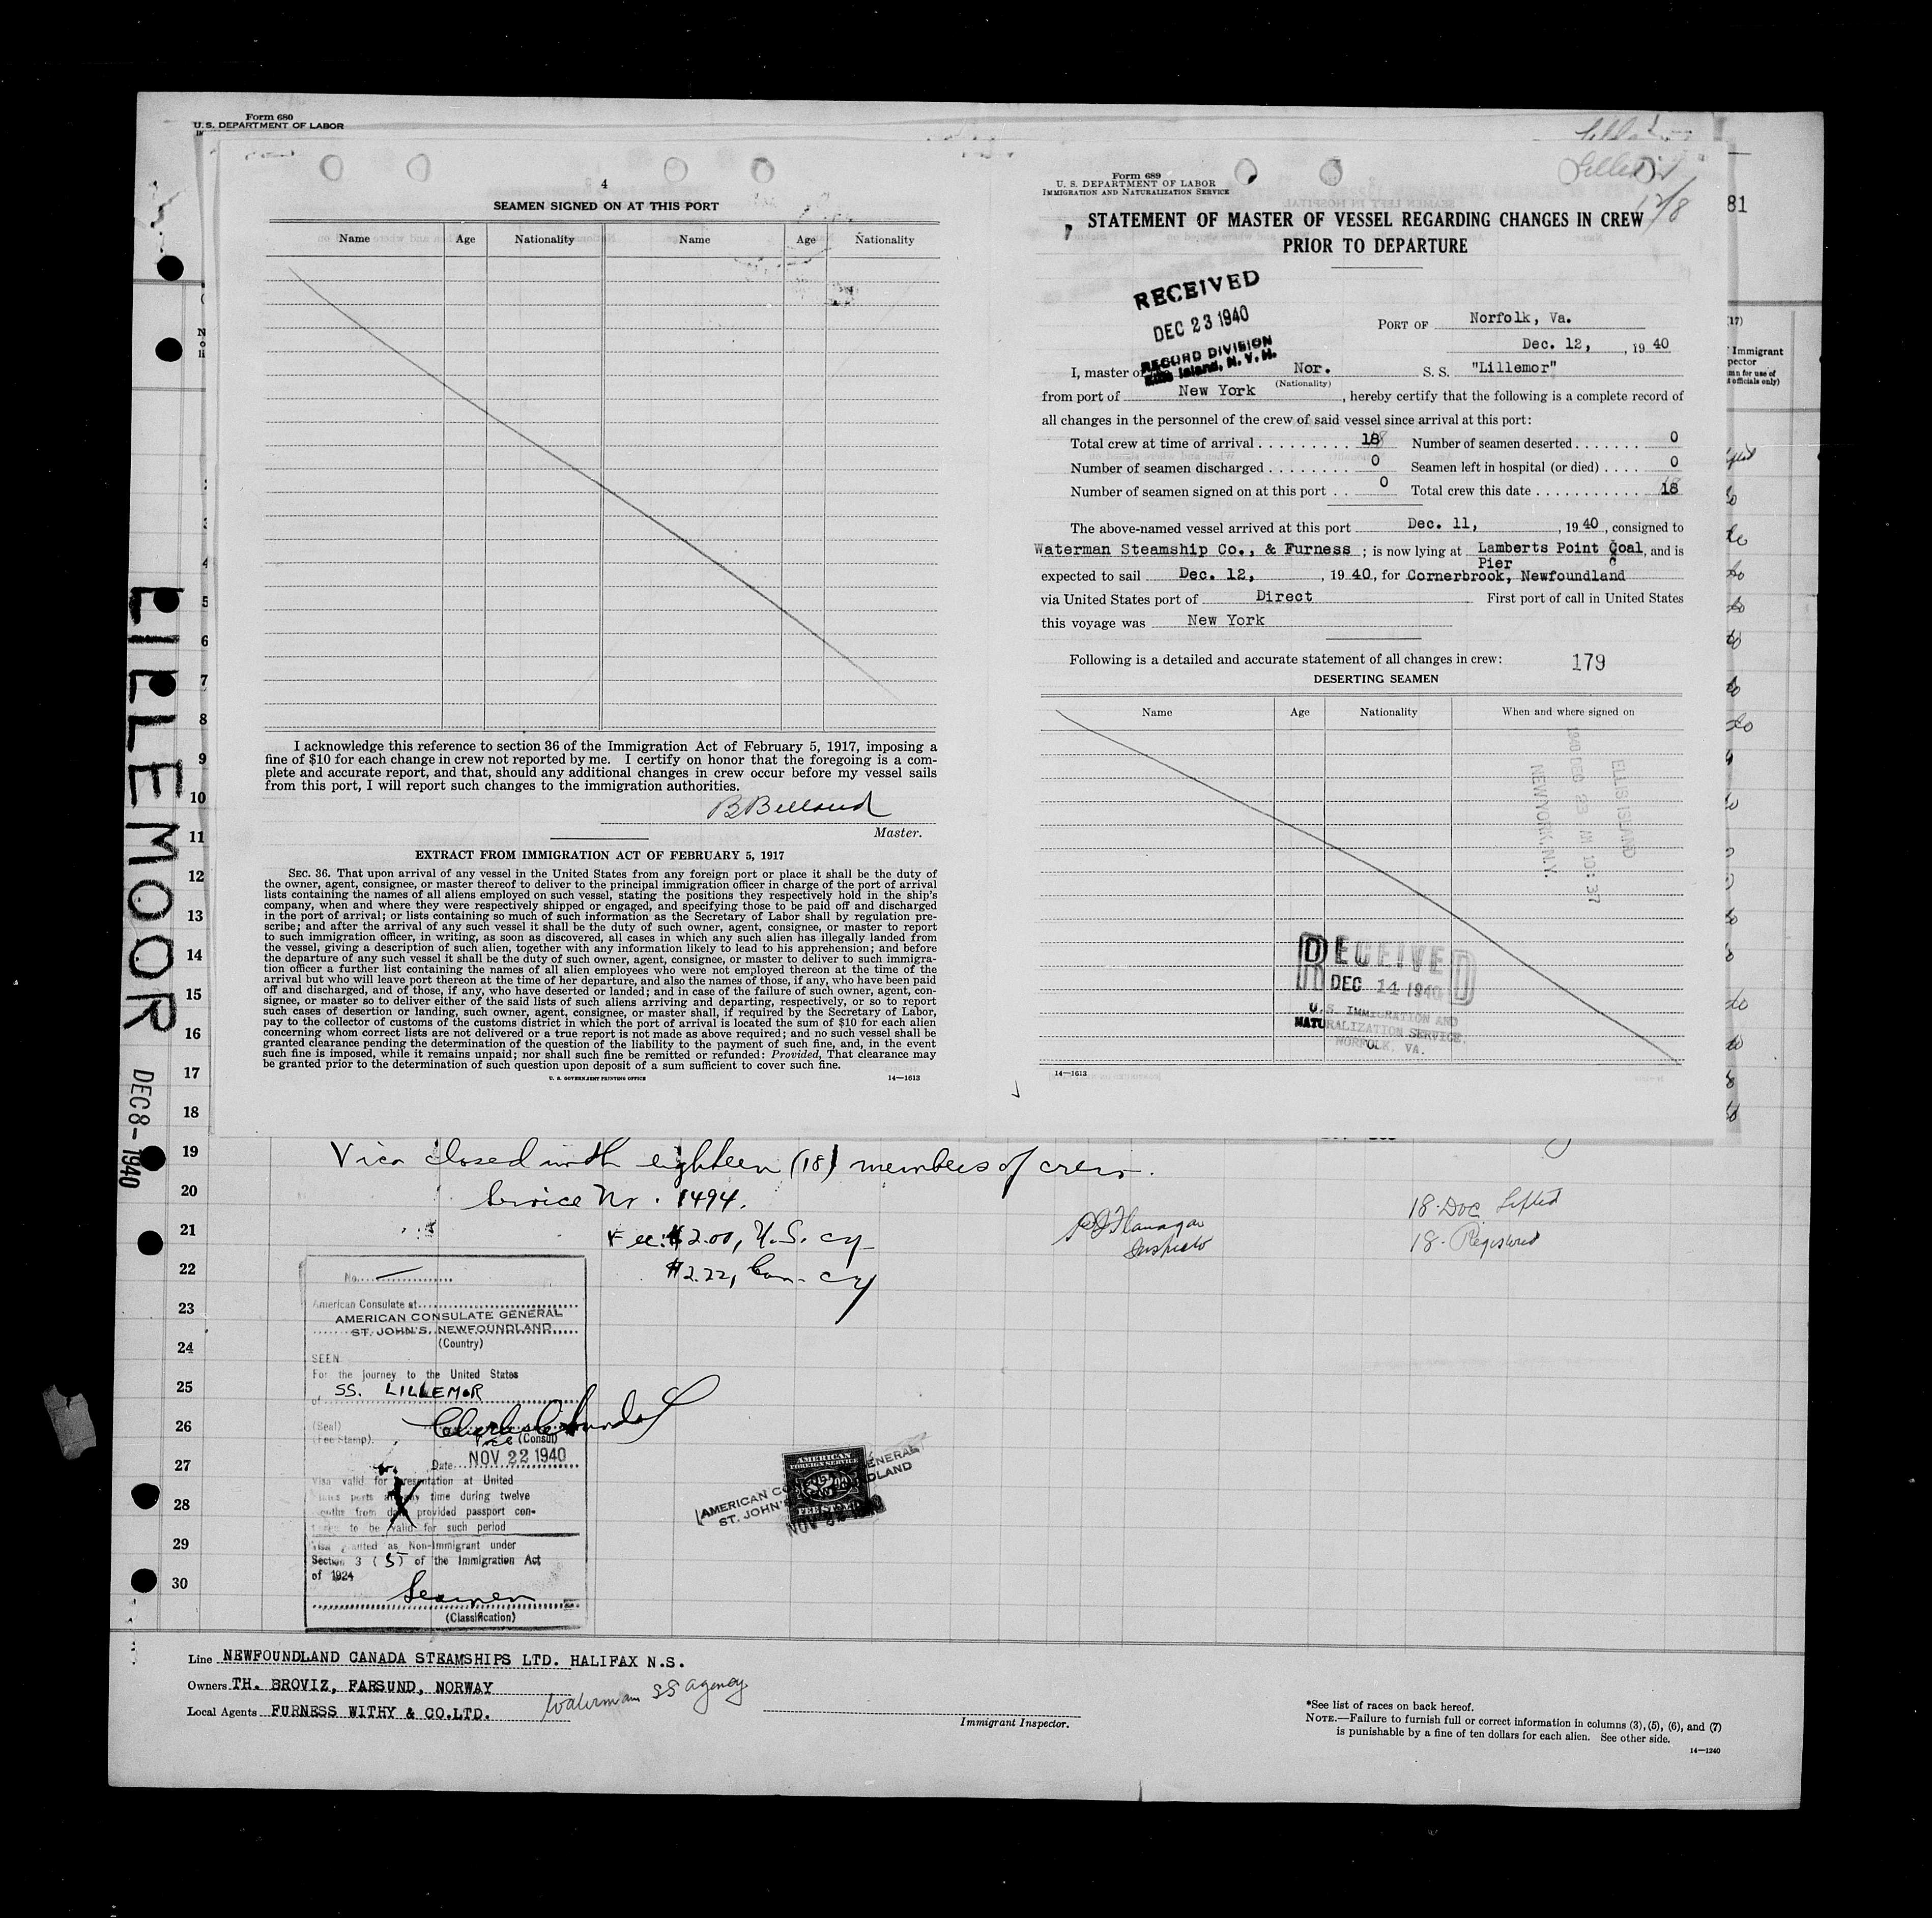 Form 680
U. S. DEPARTMENT OF LABOR
4
SEAMEN SIGNED ON AT THIS PORT
Name Age Nationality Name Age Nationality
I acknowledge this reference to section 36 of the Immigration Act of February 5, 1917, imposing a
fine of $10 for each change in crew not reported by me. I certify on honor that the foregoing is a com-
plete and accurate report, and that, should any additional changes in crew occur before my vessel sails
from this port, I will report such changes to the immigration authorities.
Master.
EXTRACT FROM IMMIGRATION ACT OF FEBRUARY 5, 1917
SEC. 36. That upon arrival of any vessel in the United States from any foreign port or place it shall be the duty of
the owner, agent, consignee, or master thereof to deliver to the principal immigration officer in charge of the port of arrival
lists containing the names of all aliens employed on such vessel, stating the positions they respectively hold in the ship's
company, when and where they were respectively shipped or engaged, and specifying those to be paid off and discharged
in the port of arrival; or lists containing so much of such information as the Secretary of Labor shall by regulation pre-
scribe; and after the arrival of any such vessel it shall be the duty of such owner, agent, consignee, or master to report
to such immigration officer, in writing, as soon as discovered, all cases in which any such alien has illegally landed from
the vessel, giving a description of such alien, together with any information likely to lead to his apprehension; and before
the departure of any such vessel it shall be the duty of such owner, agent, consignee, or master to deliver to such immigra-
tion officer a further list containing the names of all alien employees who were not employed thereon at the time of the
arrival but who will leave port thereon at the time of her departure, and also the names of those, if any, who have been paid
off and discharged, and of those, if any, who have deserted or landed; and in case of the failure of such owner, agent, con-
signee, or master so to deliver either of the said lists of such aliens arriving and departing, respectively, or so to report
such cases of desertion or landing, such owner, agent, consignee, or master shall, if required by the Secretary of Labor,
pay to the collector of customs of the customs district in which the port of arrival is located the sum of $10 for each alien
concerning whom correct lists are not delivered or a true report is not made as above required; and no such vessel shall be
granted clearance pending the determination of the question of the liability to the payment of such fine, and, in the event
such fine is imposed, while it remains unpaid; nor shall such fine be remitted or refunded: Provided, That clearance may
be granted prior to the determination of such question upon deposit of a sum sufficient to cover such fine.
U. S. GOVERNMENT PRINTING OFFICE 14—1613
Form 689
U. S. DEPARTMENT OF LABOR
IMMIGRATION AND NATURALIZATION SERVICE
12/8
STATEMENT OF MASTER OF VESSEL REGARDING CHANGES IN CREW
PRIOR TO DEPARTURE
RECEIVED
DEC 23 1940
RECORD DIVISION
Ellis Island, N. Y. H.
PORT OF Norfolk, Va.
Dec. 12, , 19 40
I, master of Nor. S. S. "Lillemor"
(Nationality)
from port of New York , hereby certify that the following is a complete record of
all changes in the personnel of the crew of said vessel since arrival at this port:
Total crew at time of arrival 18 Number of seamen deserted 0
Number of seamen discharged 0 Seamen left in hospital (or died) 0
Number of seamen signed on at this port 0 Total crew this date 18
The above-named vessel arrived at this port Dec. 11, , 19 40, consigned to
Waterman Steamship Co., & Furness ; is now lying at Lamberts Point Coal, and is
Pier
expected to sail Dec. 12, , 19 40, for Cornerbrook, Newfoundland
via United States port of Direct First port of call in United States
this voyage was New York
Following is a detailed and accurate statement of all changes in crew: 179
DESERTING SEAMEN
Name Age Nationality When and where signed on
ELLIS ISLAND
1940 DEC 23 AM 10: 37
NEW YORK, N.Y.
RECEIVED
DEC 14 1940
U.S. IMMIGRATION AND
NATURALIZATION SERVICE.
NORFOLK, VA.
14—1613
81
(17)
Immigrant
(column for use of
officials only)
LILLEMOOR
DEC 8- 1940
4
5
6
7
8
9
10
11
12
13
14
15
16
17
18
19
20
21
22
23
24
25
26
27
28
29
30
Visa closed with eighteen (18) members of crew.
Service Nr. 1494.
Fee: $2.00, U.S. cy
$2.22, Can. cy
Flanagan
Inspector
18 Doc. Lifted
18 Registered
No.
American Consulate at
AMERICAN CONSULATE GENERAL
ST. JOHN'S, NEWFOUNDLAND
(Country)
SEEN
For the journey to the United States
of SS. LILLEMOR
(Seal)
(Fee Stamp). Vice (Consul)
Date NOV 22 1940
Visa valid for presentation at United
States ports at any time during twelve
months from date provided passport con-
tinues to be valid for such period
Visa granted as Non-Immigrant under
Section 3 (5) of the Immigration Act
of 1924
Seamen
(Classification)
AMERICAN
FOREIGN SERVICE
FEE STAMP
AMERICAN CONSULATE GENERAL
ST. JOHN'S NEWFOUNDLAND
NOV 22 1940
Line NEWFOUNDLAND CANADA STEAMSHIPS LTD. HALIFAX N.S.
Owners TH. BROVIZ, FARSUND, NORWAY
Waterman SS Agency
Local Agents FURNESS WITHY & CO.LTD.
Immigrant Inspector.
*See list of races on back hereof.
NOTE.—Failure to furnish full or correct information in columns (3), (5), (6), and (7)
is punishable by a fine of ten dollars for each alien. See other side.
14—1240